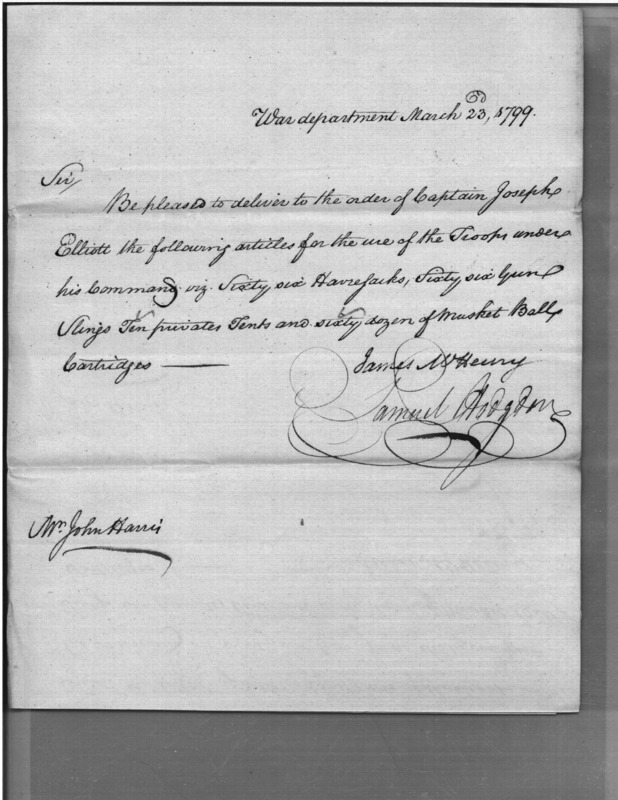 War department March 23d, 1799.
Sir,
Be pleased to deliver to the order of Captain Joseph
Elliott the following articles for the use of the Troops under
his Command viz. Sixty six Havresacks, Sixty six Gun
Slings Ten privates Tents and sixty dozen of Musket Ball
Cartridges —
James McHenry
Samuel Hodgdon
Mr. John Harris